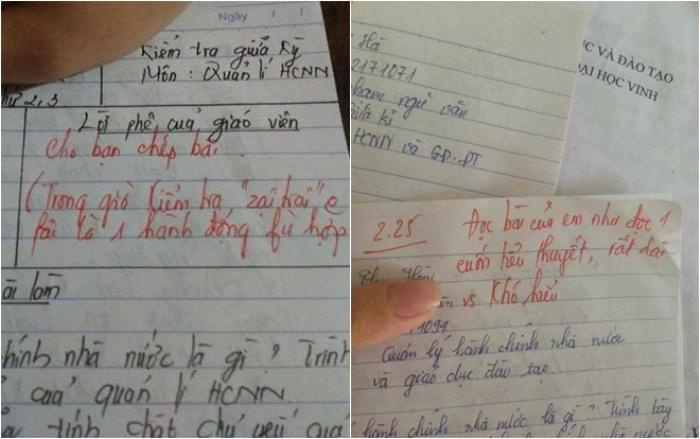 Ngày / /
Kiểm tra giữa Kỳ
Môn : Quản lí HCNN
2, 3
Lời phê của giáo viên
Cho bạn chép bài.
(Trong giờ kiểm tra, "zại zai" e
fải là 1 hành động fù hợp
ài làm
hính nhà nước là gì ? Trình
của quản lí HCNN
tính chất chủ yếu của
Hà
2171071
ngữ văn
giữa kì
HCNN và GD-ĐT
ỤC VÀ ĐÀO TẠO
ẠI HỌC VINH
2.25
Đọc bài của em như đọc 1
cuốn tiểu thuyết, rất dài
vs khó hiểu
1099
Quản lý hành chính nhà nước
và giáo dục đào tạo
hành chính nhà nước là gì ? Trình bày